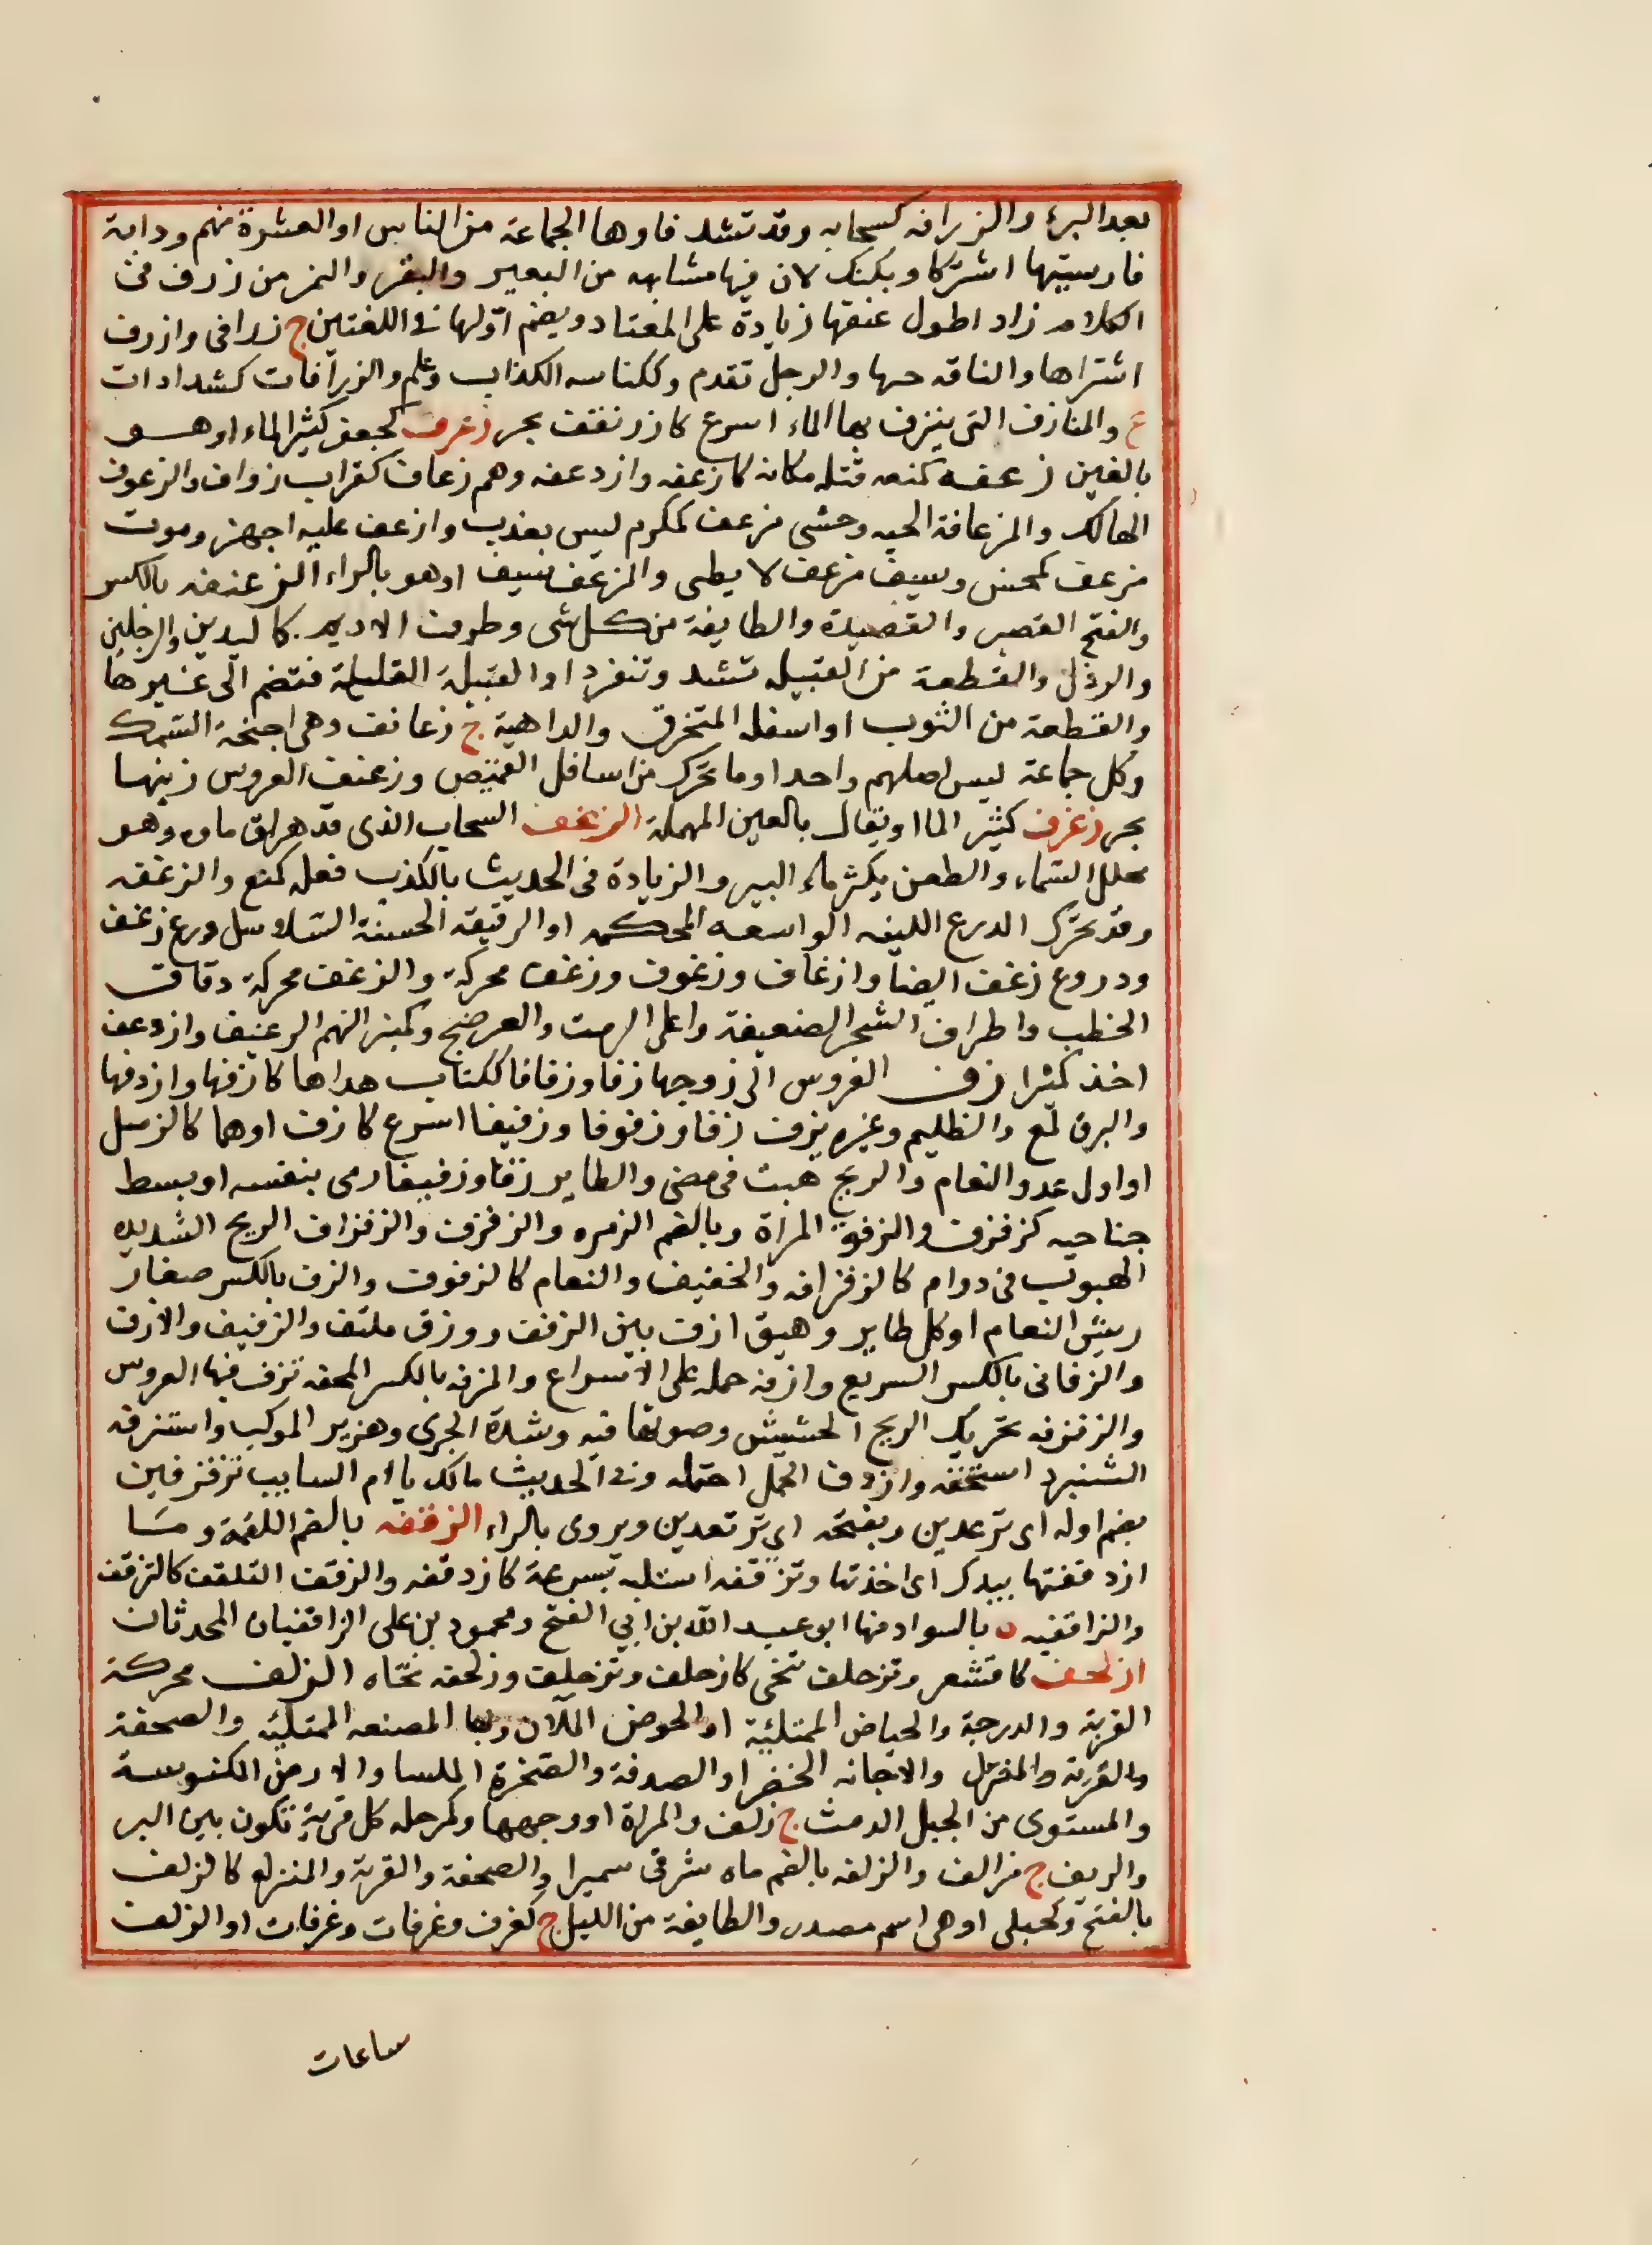 بعد البرء والزرافه كسحابه وقد تشد فاوها الجماعة من الناس او العشرة منهم ودابة
فارسيتها اشتركاو بلنك لان فيها مشابه من البعير والبقر والنمر من زرف فى
الكلام زاد اطول عنقها زيادة على المعتاد ويضم اولها فى اللغتين ج زرافى وازرف
اشتراها والناقه حثها والرجل تقدم وككناسه الكذاب وعلم والزرافات كشدادات
ع والمنازف التى ينزف بها الماء اسرع كازرنفف بحر زعرف كجعفر كثير الماء او هو
بالغين زعفه كمنعه قتله مكانه كازعفه وازدعفه وهم زعاف كغراب زواف والزعوف
المهالك والمزعافة الحيه وحشى مزعف كمكرم ليس بعذب وازعف عليه اجهز وموت
مزعف كمحسن وسيف مزعف لا يطنى والمزعف سيف او هو بالراء الزعنفه بالكسر
والفتح القصير والقصيرة والطايفة من كل شى وطرف الاديم كاليدين والرجلين
والرذل والقطعة من القبيله تشد وتنفرد او القبيلة القليلة فتضم الى غيرها
والقطعة من الثوب او اسفله المتخرق والداهية ج زعانف وهى اجنحة السمك
وكل جماعة ليس اصلهم واحدا وما تحرك من اسافل القميص وزعنف العروس زينها
بحر زغرف كثير الما او يقال بالعين المهملة الزغف السحاب الذى قد هراق ماه وهو
مجلل السماء والطعن يكثر ماء البير والزيادة فى الحديث بالكذب فعله كمنع والزغفه
وقد تحرك الدرع اللينه الواسعه المحكمه او الرقيقه الحسنة السلاسل درع زغف
ودروع زغف ايضا وازغاف وزغوف وزغف محركة والزغف محركة دقاق
الحطب واطراف الشجر الضعيفة واعلى الرمث والعرفج وكمنبر النهم الرغيف وازدعف
اخذ كثيرا زف العروس الى زوجها زفا وزفافا ككتاب هداها كازفها وازدفها
والبرق لمع والظليم وغيره يزف زفا وزفوفا وزفيفا اسرع كازف او هما كالزميل
او اول عدو النعام والريح هبت فى مضى والطاير زفا وزفيفا رمى بنفسه او بسط
جناحيه كزفزف والزفة المرة وبالضم الزمره والزفزف والزفزاف الريح الشديده
الهبوب فى دوام كالزفزافه والخفيف والنعام كالزفوف والزف بالكسر صغار
ريش النعام او كل طاير وهيق ازف بين الزفف وزق ملتف والزفيف والازف
والزفانى بالكسر السريع وازفه حمله على الاسراع والمزفه بالكسر المحفه تزف فيها العروس
والزفزفه تحريك الريح الحشيش وصوتها فيه وشدة الجرى وهزيز الموكب واستزفه
السير استخفه وازدف الحمل احتمله وفى الحديث مالك يا ام السايب تزفزفين
بضم اوله اى ترعدين وبفتحه اى ترتعدين ويروى بالراء الزقفه بالضم اللقمة وما
ازدقفتها بيدك اى اخذتها وتزقفه استلبه بسرعة كازدقفه والزقف التلقف كالتزقف
والزاقفيه ه بالسواد منها ابو عبد الله بن ابي الفتح ومحمود بن على الزاقفيان المحدثان
ازلحف كاقشعر وتزحلف تنحى كازحلف وتزحلف وزلحفه نحاه الزلف محركة
القربة والدرجة والحياض الممتلئية او الحوض الملآن وبها المصنعه الممتلئيه والصحفة
والقربة والمنزل والاجانه الخضرا والصدفة والصخرة الملسا والارض الكنوسة
والمستوى من الجبل الدمث ج زلف والمراة او وجهها وكمرحله كل قرية تكون بين البر
والريف ج مزالف والزلفه بالضم ماه شرقى سميرا والصحفة والقربة والمنزله كالزلف
بالفتح وكحبلى او هى اسم مصدر والطايفة من الليل ج كغرف وغرفات وغرفات او الزلف
ساعات